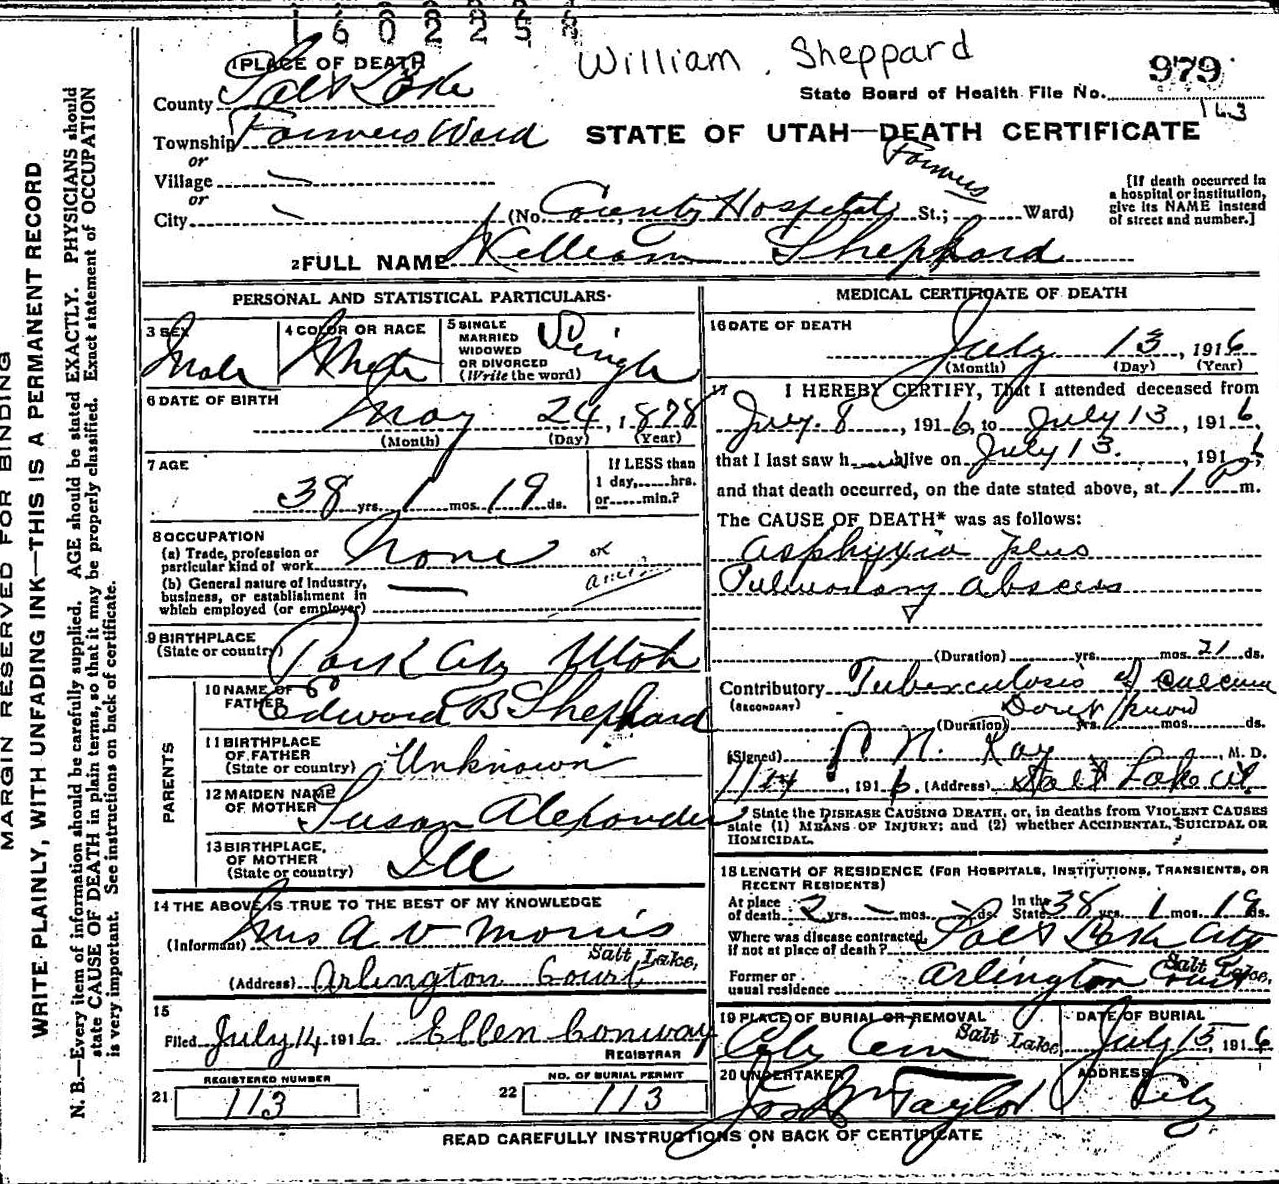 1602258
William Sheppard
979
State Board of Health File No.
163
STATE OF UTAH—DEATH CERTIFICATE
1 PLACE OF DEATH
County Salt Lake
Township Farmers Ward
or
Village —
or
City —
(No. County Hospital St.; Farmers Ward)
[If death occurred in a hospital or institution, give its NAME instead of street and number.]
2 FULL NAME William Sheppard
PERSONAL AND STATISTICAL PARTICULARS.
3 SEX Male
4 COLOR OR RACE White
5 SINGLE MARRIED WIDOWED OR DIVORCED (Write the word) Single
6 DATE OF BIRTH May 24, 1878
(Month) (Day) (Year)
7 AGE
38 yrs. 1 mos. 19 ds.
If LESS than 1 day,.....hrs. or.....min.?
8 OCCUPATION
(a) Trade, profession or particular kind of work None
(b) General nature of Industry, business, or establishment in which employed (or employer) —
9 BIRTHPLACE (State or country) Park City Utah
PARENTS
10 NAME OF FATHER Edward B Sheppard
11 BIRTHPLACE OF FATHER (State or country) Unknown
12 MAIDEN NAME OF MOTHER Susan Alexander
13 BIRTHPLACE OF MOTHER (State or country) Ill
14 THE ABOVE IS TRUE TO THE BEST OF MY KNOWLEDGE
(Informant) Mrs A V Morris
(Address) Arlington Court, Salt Lake,
15
Filed July 14 1916 Ellen Conway
REGISTRAR
21 REGISTERED NUMBER 113
22 NO. OF BURIAL PERMIT 113
MEDICAL CERTIFICATE OF DEATH
16 DATE OF DEATH
July 13, 1916
(Month) (Day) (Year)
17 I HEREBY CERTIFY, That I attended deceased from
July 8, 1916, to July 13, 1916,
that I last saw h alive on July 13, 1916,
and that death occurred, on the date stated above, at 1 P m.
The CAUSE OF DEATH* was as follows:
Asphyxia plus
Pulmonary abscess
(Duration) yrs. mos. 21 ds.
Contributory (SECONDARY) Tuberculosis of caecum
Don't know
(Duration) yrs. mos. ds.
(Signed) N. Kay, M. D.
1916. (Address) Salt Lake City
* State the DISEASE CAUSING DEATH, or, in deaths from VIOLENT CAUSES
state (1) MEANS OF INJURY; and (2) whether ACCIDENTAL, SUICIDAL OR
HOMICIDAL.
18 LENGTH OF RESIDENCE (FOR HOSPITALS, INSTITUTIONS, TRANSIENTS, OR RECENT RESIDENTS)
At place of death 2 yrs. — mos. — ds. In the State 38 yrs. 1 mos. 19 ds.
Where was disease contracted, if not at place of death? Salt Lake City
Former or usual residence Arlington Court Salt Lake,
19 PLACE OF BURIAL OR REMOVAL City Cem Salt Lake
DATE OF BURIAL July 15, 1916
20 UNDERTAKER Taylor
ADDRESS City
READ CAREFULLY INSTRUCTIONS ON BACK OF CERTIFICATE
MARGIN RESERVED FOR BINDING
WRITE PLAINLY, WITH UNFADING INK—THIS IS A PERMANENT RECORD
N. B.—Every item of information should be carefully supplied. AGE should be stated EXACTLY. PHYSICIANS should
state CAUSE OF DEATH in plain terms, so that it may be properly classified. Exact statement of OCCUPATION
is very important. See instructions on back of certificate.